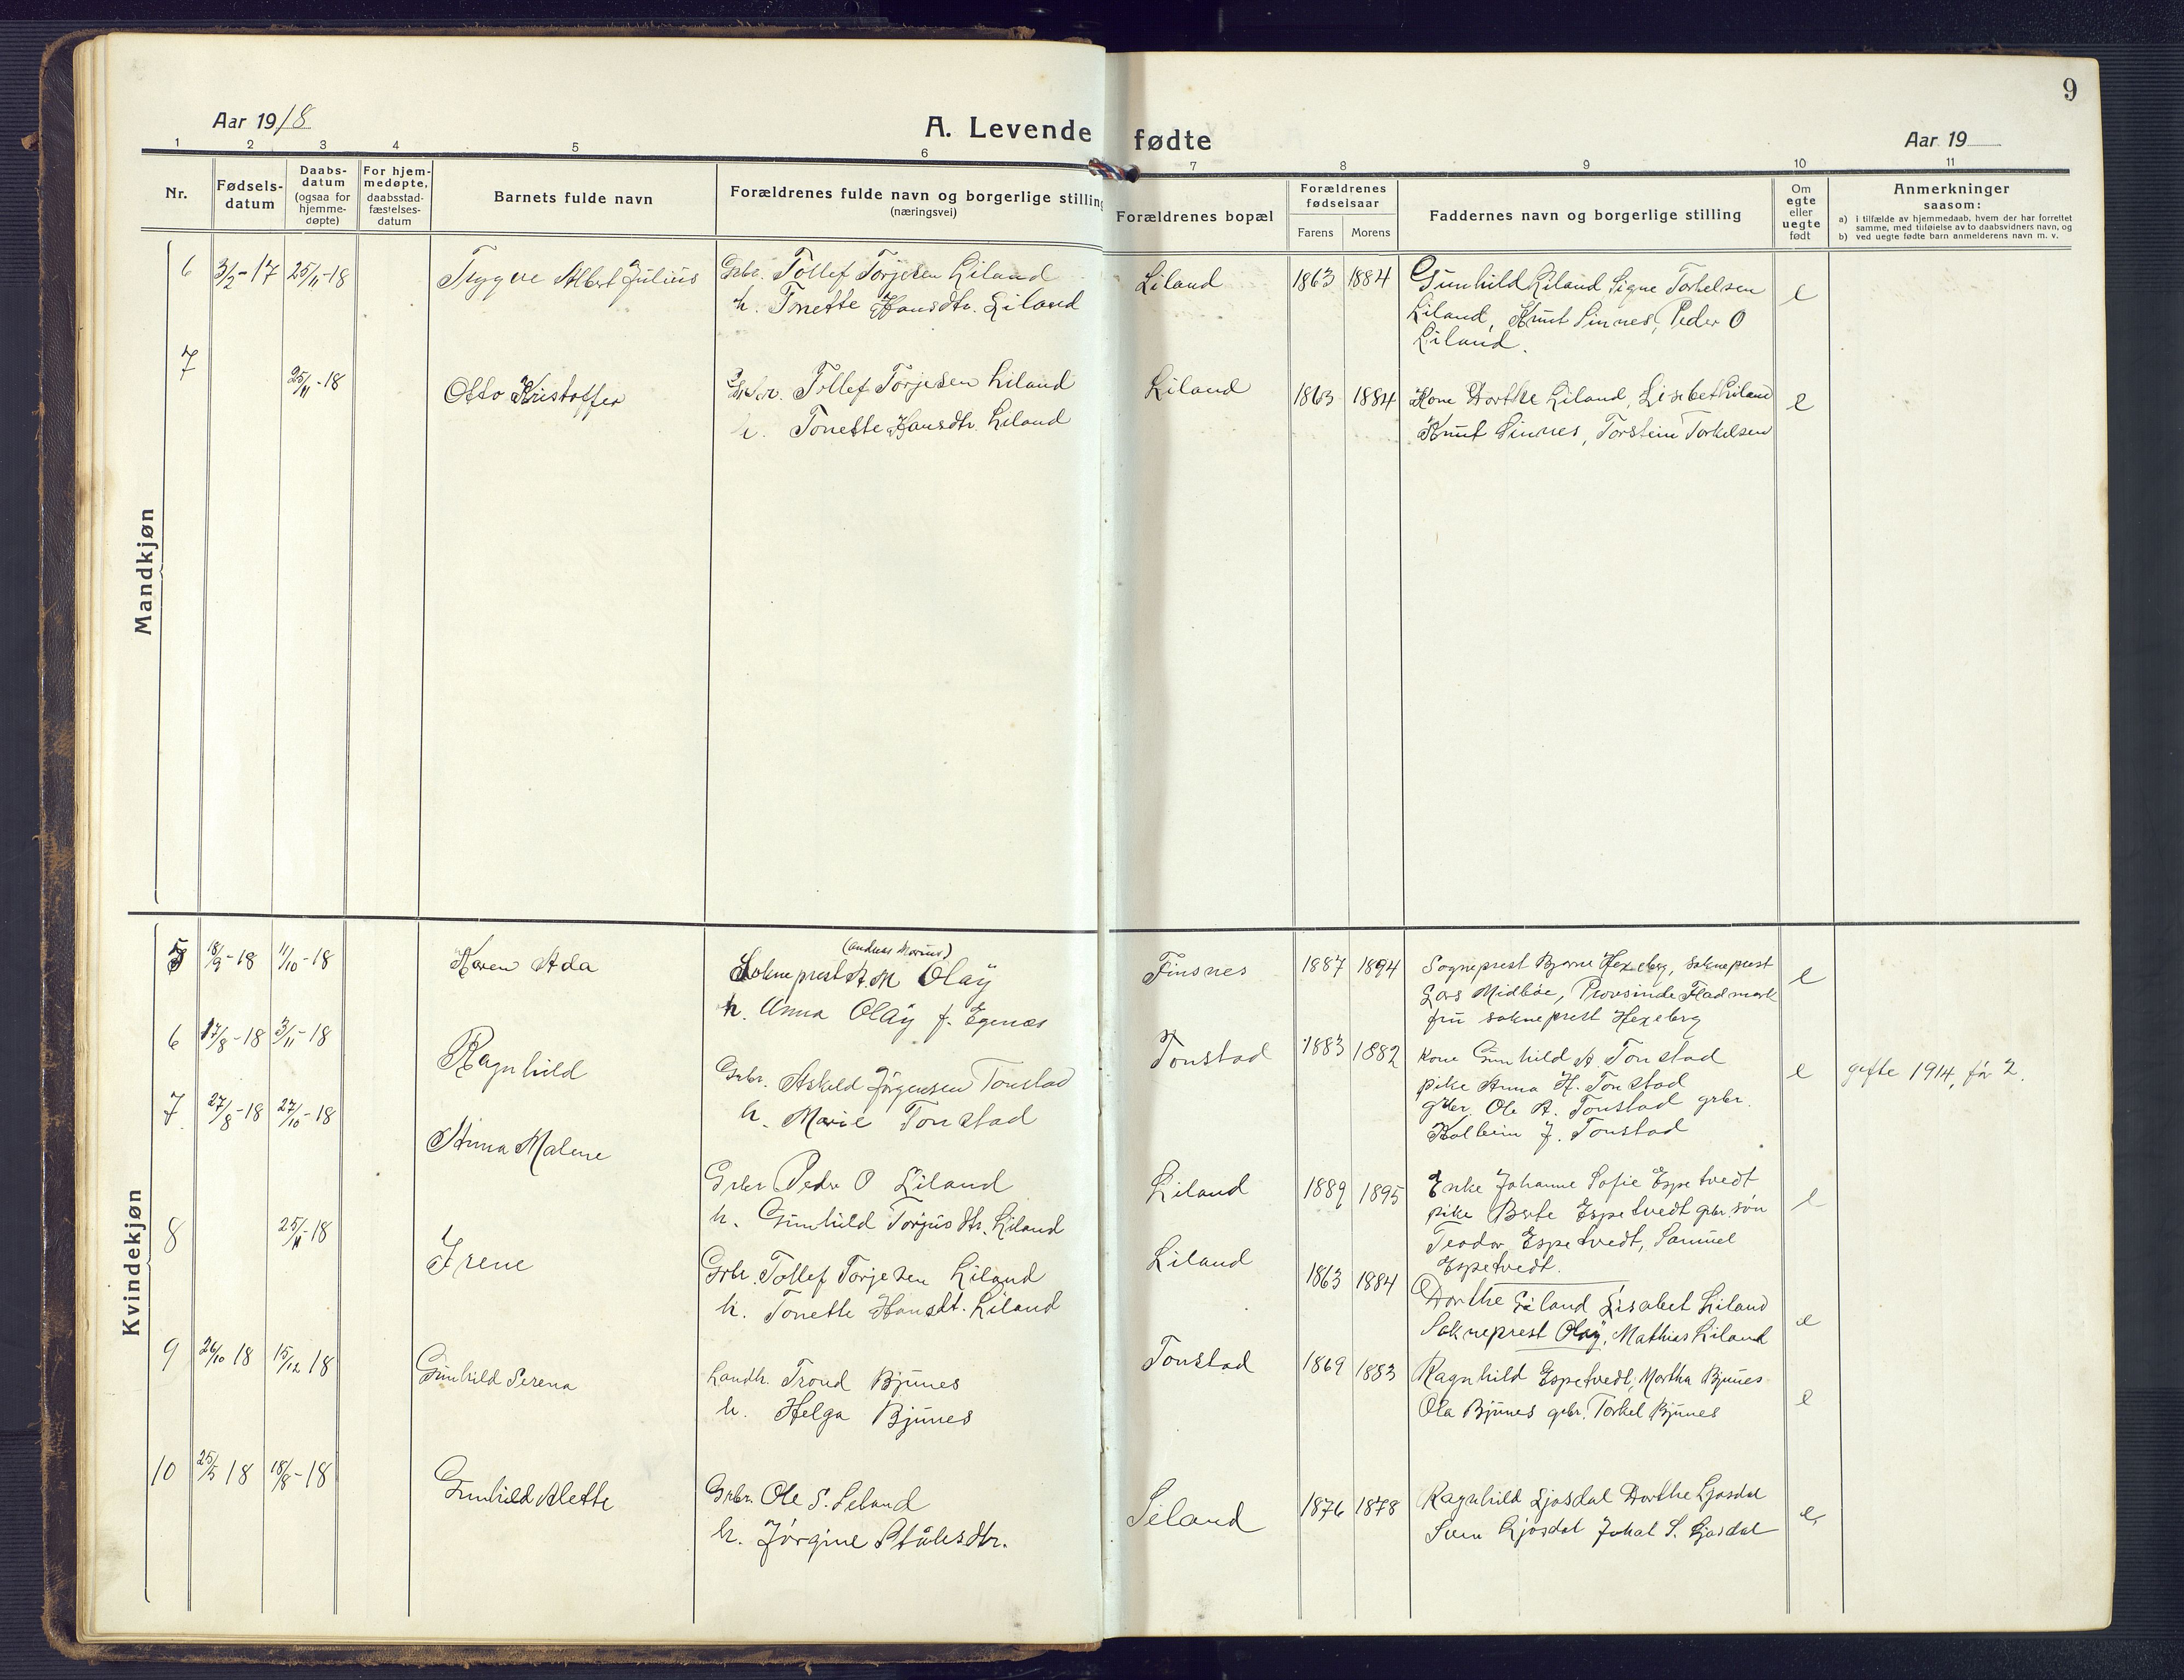 9
Aar 1918
A. Levende fødte
Aar 19
1 2 3 4 5 6 7 8 9 10 11
Nr.
Fødsels-
datum
Daabs-
datum
(ogsaa for
hjemme-
døpte)
For hjem-
medøpte,
daabsstad-
fæstelses-
datum
Barnets fulde navn
Forældrenes fulde navn og borgerlige stilling
(næringsvei)
Forældrenes bopæl
Forældrenes
fødselsaar
Farens Morens
Faddernes navn og borgerlige stilling
Om
egte
eller
uegte
født
Anmerkninger
saasom:
a) i tilfælde av hjemmedaab, hvem der har forrettet
samme, med tilføielse av to daabsvidners navn, og
b) ved uegte fødte barn anmelderens navn m. v.
Mandkjøn
6 3/2-17 25/11-18 Trygve Albert Julius
Grbr. Tollef Torjesen Liland
h. Tonette Hansdtr. Liland
Liland 1863 1884
Gunhild Liland Signe Torkelsen
Liland, Knut Sinnes, Peder O
Liland.
e
7 25/11-18 Otto Kristoffer
Grbr. Tollef Torjesen Liland
h. Tonette Hansdtr. Liland
Liland 1863 1884
Kone Dorthe Liland, Lisebet Liland
Knut Sinnes, Torstein Torkelsen
e
Kvindekjøn
5 18/9-18 11/10-18 Karen Ada
(Andreas Marius)
Sokneprest A. M Olaÿ
h. Anna Olaÿ f. Egenæs
Finsnes 1887 1894
Sogneprest Bjarne Hexeberg, sokneprest
Lars Midbøe, Provsinde Fladmark
fru sokneprest Hexeberg
e
6 17/8-18 3/11-18 Ragnhild
Grbr. Askild Jørgensen Tonstad
h. Marie Tonstad
Tonstad 1883 1882
kone Gunhild A. Tonstad
pike Anna H. Tonstad
grbr. Ole A. Tonstad grbr.
Kolbein J. Tonstad
e gifte 1914, får 2.
7 27/8-18 27/10-18 Anna Malene
Grbr Peder O Liland
h. Gunhild Torjusdtr. Liland
Liland 1889 1895
Enke Johanne Sofie Espetvedt
pike Berte Espetvedt gbr. søn
Teodor Espetvedt, Samuel
Espetvedt.
e
8 25/11-18 Irene
Grbr. Tollef Torjesen Liland
h. Tonette Hansdt. Liland
Liland 1863 1884
Dorthe Liland Lisabet Liland
Sokneprest Olaÿ, Mathias Liland
e
9 26/10 18 15/12 18 Gunhild Serena
Landh. Trond Bjunes
h. Helga Bjunes
Tonstad 1869 1883
Ragnhild Espetvedt, Martha Bjunes
Ola Bjunes gbr. Torkel Bjunes
e
10 25/5 18 18/8-18 Gunhild Alette
Grbr. Ole S. Seland
h. Jørgine Ståles dtr.
Seland 1876 1878
Ragnhild Ljosdal Dorthe Ljosdal
Sven Ljosdal S. Ljosdal
e